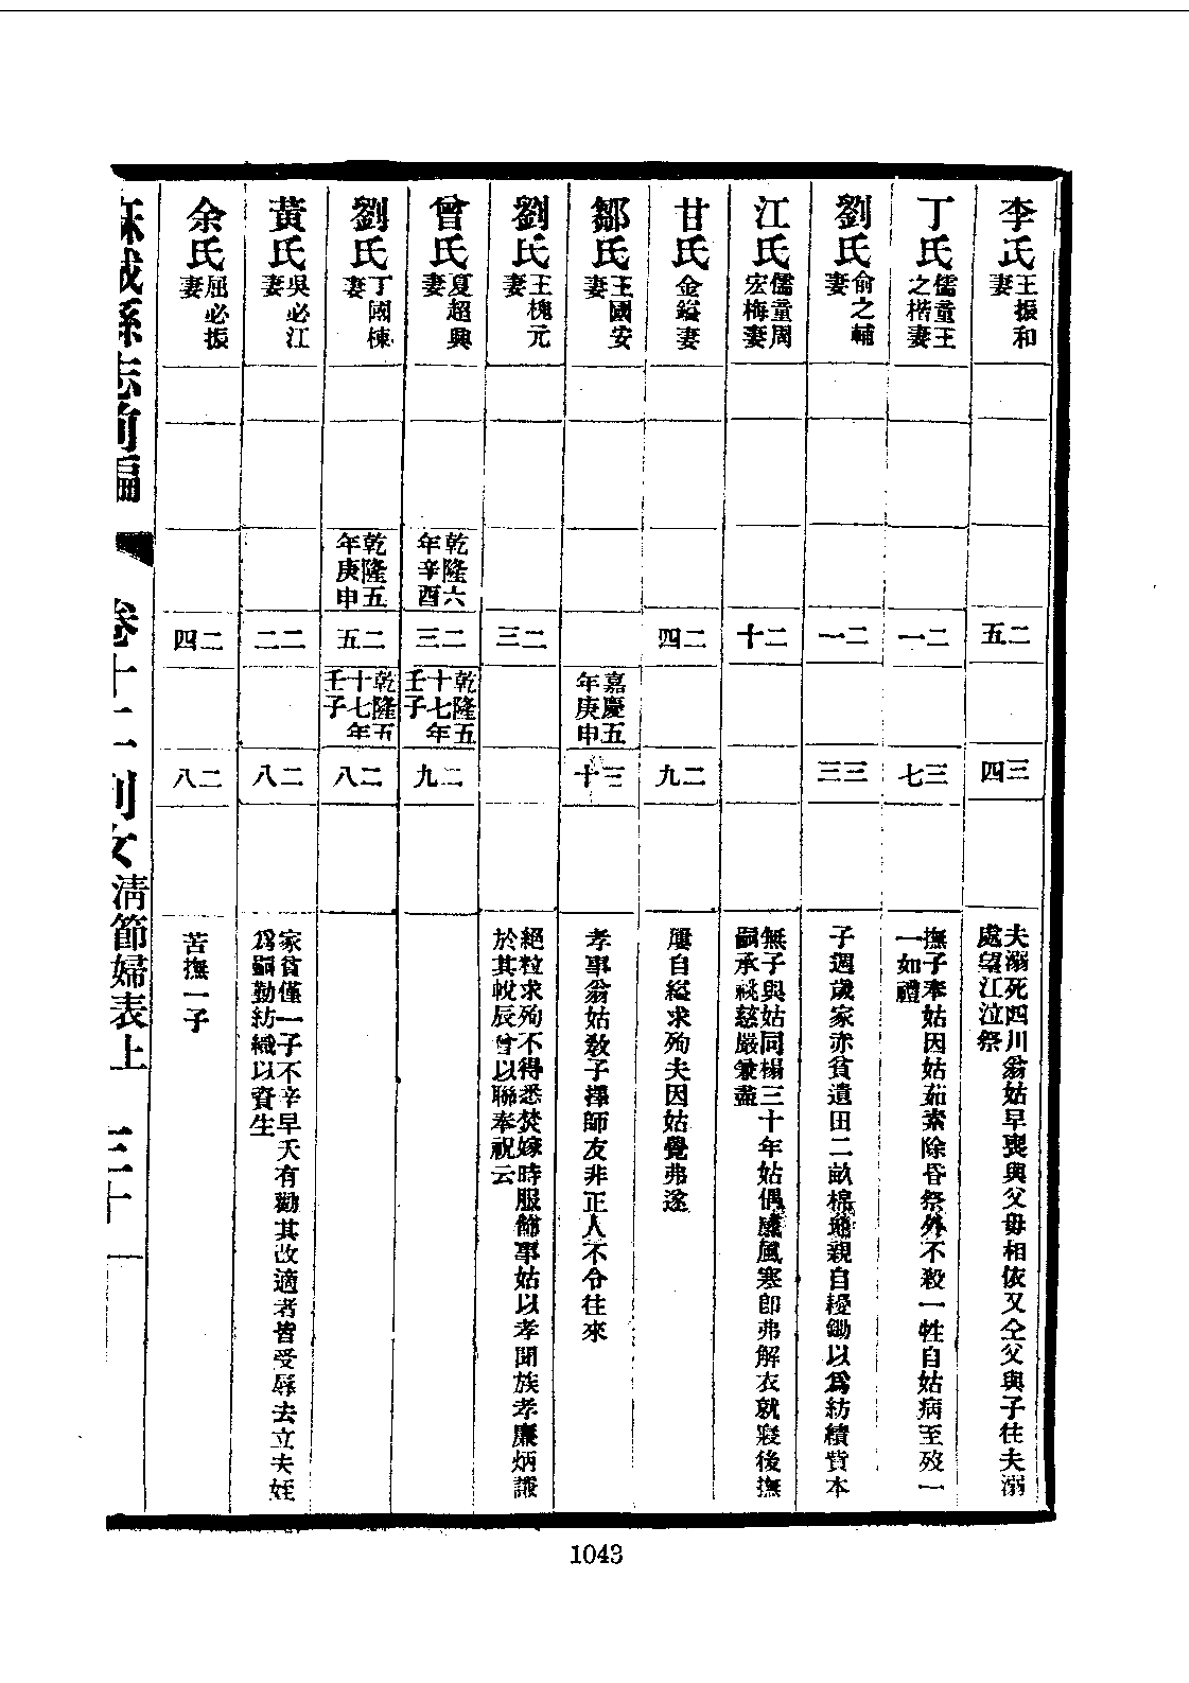 李氏
王振和
妻
二五
三四
夫溺死四川翁姑早喪與父毋相依又仝父與子往夫溺
處望江泣祭
丁氏
儒童王
之楷妻
二一
三七
撫子奉姑因姑茹素除昏祭外不殺一牲自姑病至歿一
一如禮
劉氏
俞之輔
妻
二一
三三
子週歲家亦貧遺田二畝棉地親自耰鋤以爲紡績貲本
江氏
儒童周
宏梅妻
二十
無子與姑同榻三十年姑偶感風寒即弗解衣就寢後撫
嗣承祧慈嚴兼盡
甘氏
金鎰妻
二四
二九
屢自縊求殉夫因姑覺弗遂
鄒氏
王國安
妻
嘉慶五
年庚申
三十
孝事翁姑敎子擇師友非正人不令往來
劉氏
王槐元
妻
二三
絕粒求殉不得悉焚嫁時服飾事姑以孝聞族孝廉炳
於其帨辰曾以聯奉祝云
曾氏
夏超興
妻
乾隆六
年辛酉
二三
乾隆五
十七年
壬子
二九
劉氏
丁國棟
妻
乾隆五
年庚申
二五
乾隆五
十七年
壬子
二八
黃氏
吳必江
妻
二二
二八
家貧僅一子不辛早夭有勸其改適者皆受辱去立夫姪
爲嗣勤紡織以資生
余氏
屈必振
妻
二四
二八
苦撫一子
麻城縣志前編
卷十二列女
淸節婦表上
三十一
1043